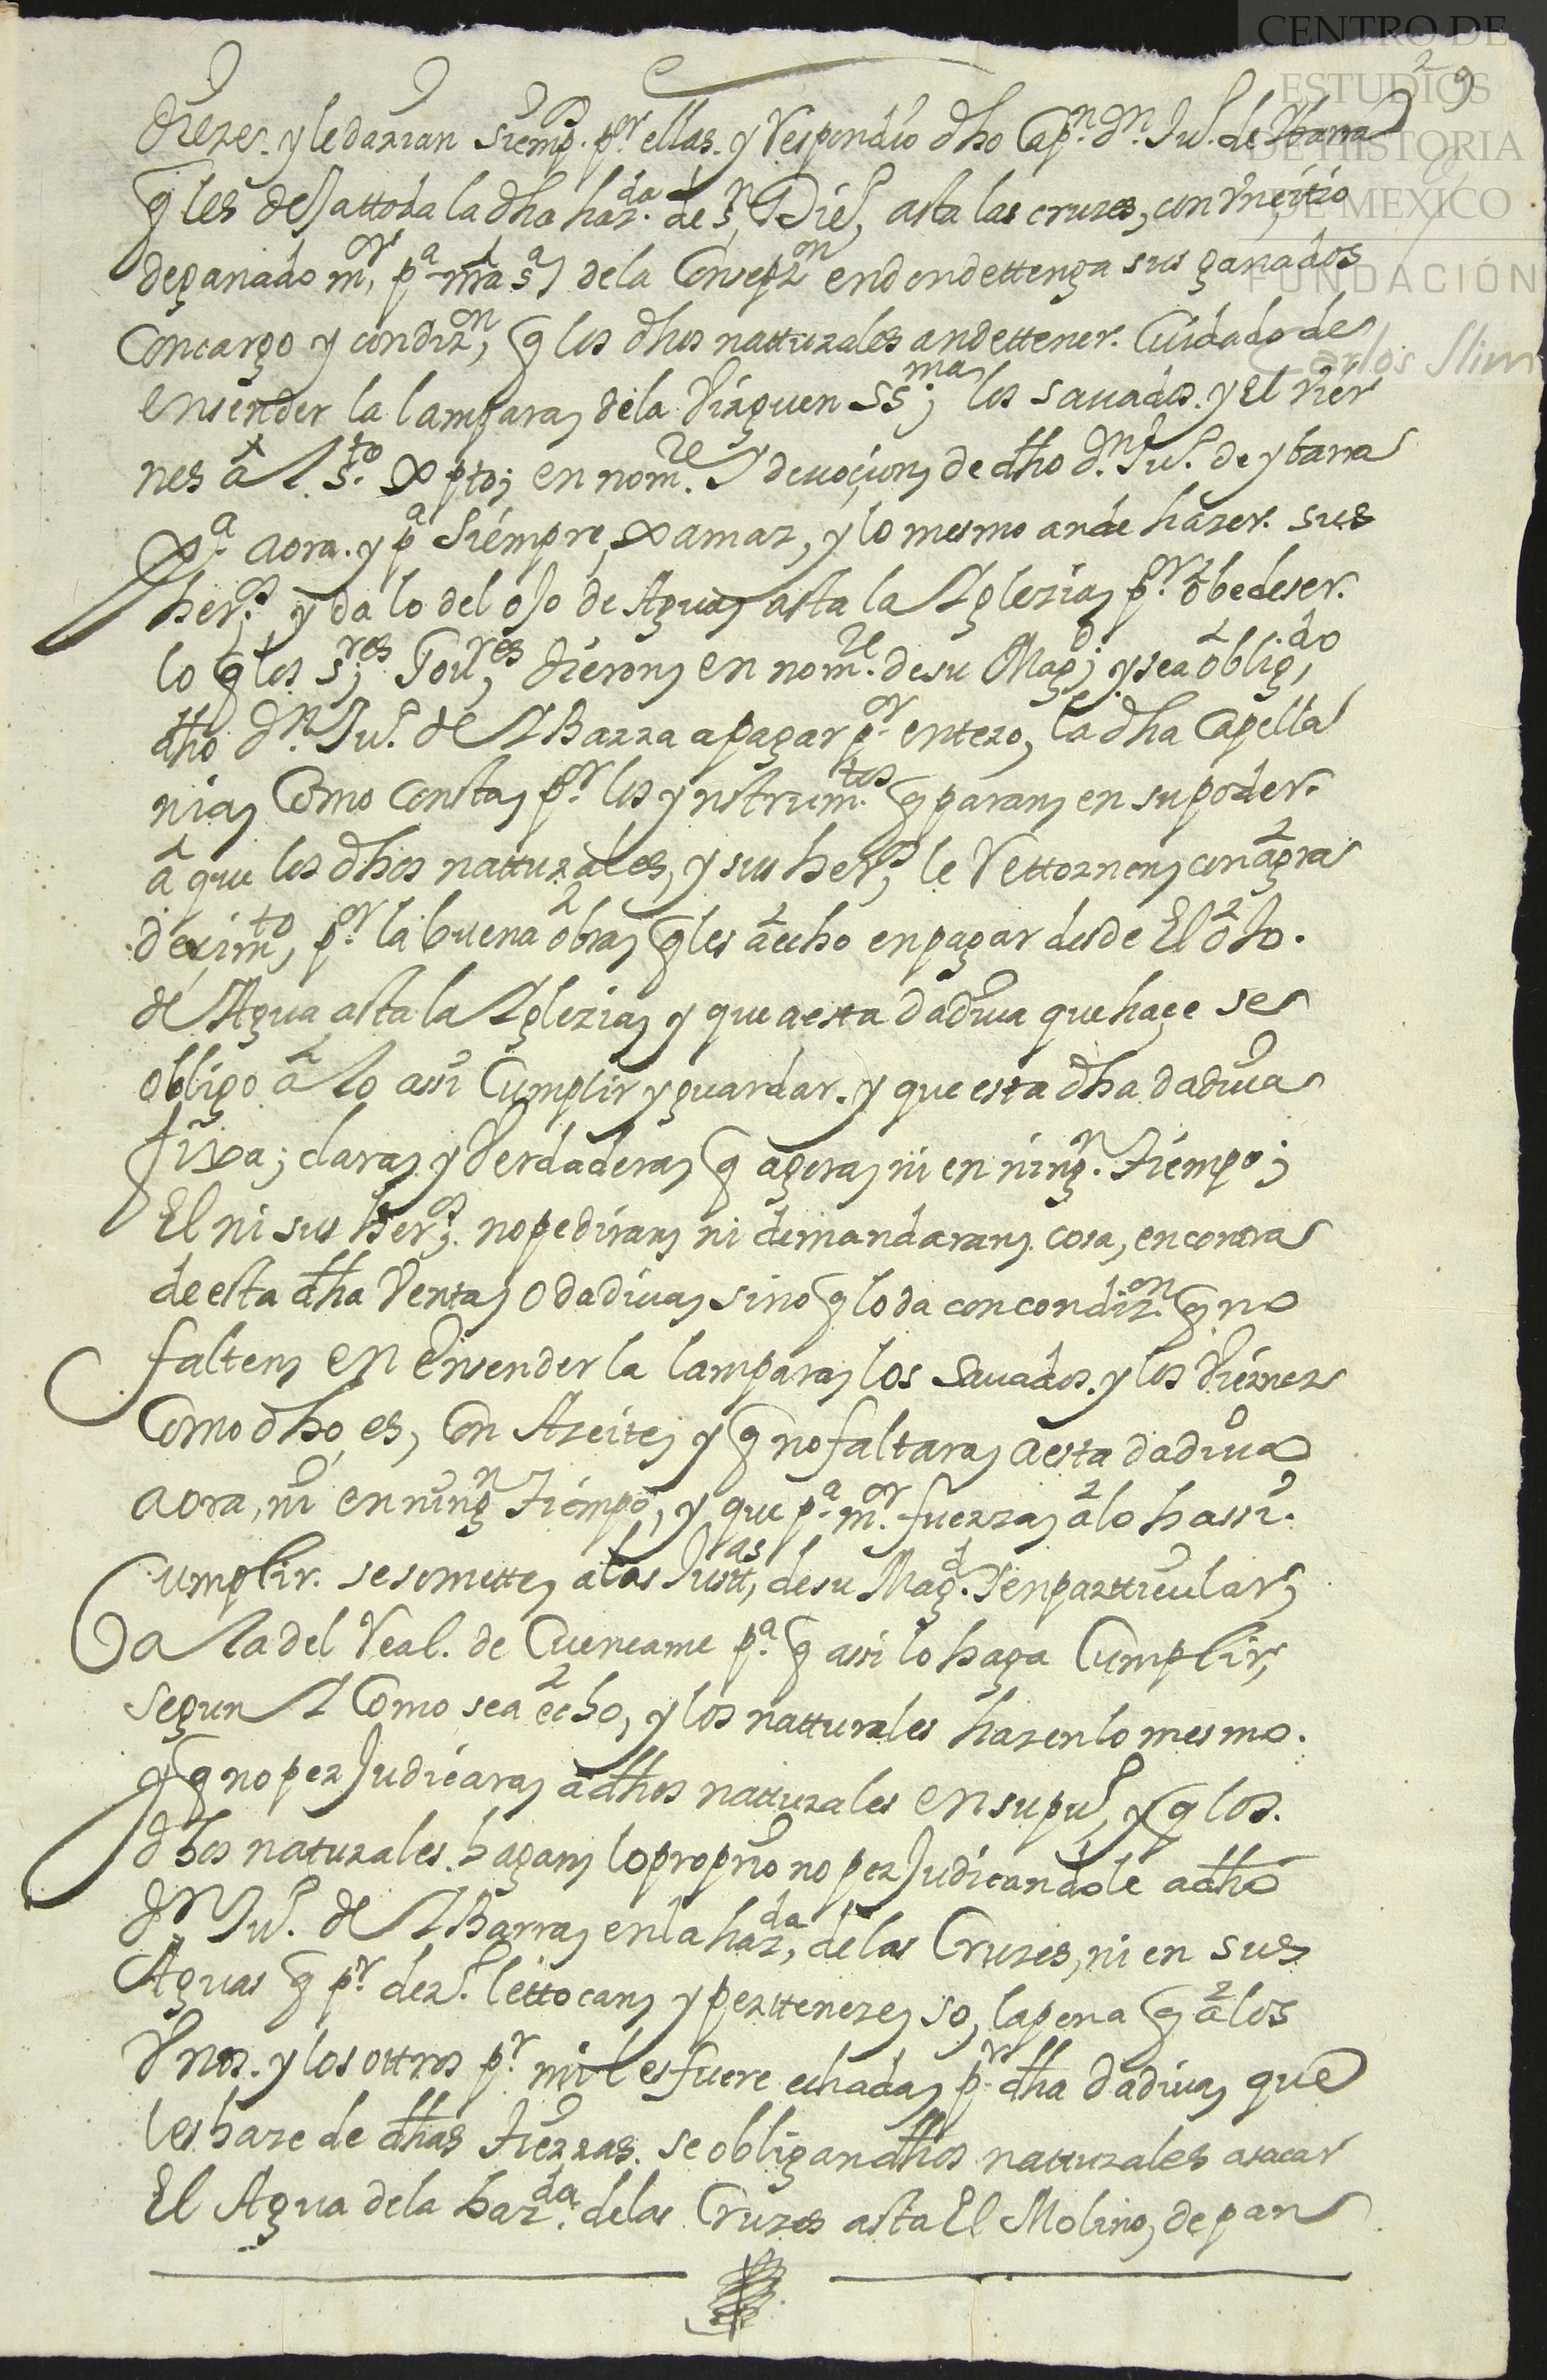 CENTRO DE
ESTUDIOS
DE HISTORIA
DE MEXICO
FUNDACIÓN
Carlos Slim
29
diezes. y le darian siemp.e p.r ellas. y Respondio dho Cap.n d.n Ju.o de Ybarra
q les desa ttoda la dha haz.da de s.n Die.o, asta las cruzes, con vn sitio
de ganado m.r, p.a de la Consepz.on en donde ttenga sus ganados
con cargo y condiz.on, q los dhos natturales an de ttener. Cuidado de
ensender la lampara de la Virguen SS.ma los sauados. y el vier
nes â el s.to xpto; en nom.re y deuocion de dho d.n Ju.o de ybarra
p.a aora. y p.a siempre xamaz, y lo mesmo an de hazer. sus
her.os y da lo del oJo de Agua asta la Yglezia p.r obedeser.
lo q los s.res Gou.res dieron en nom.re de su Mag.d y sea oblig.do
dho d.n Ju.o de YBarra a pagar p.r entero, la dha Capella
nia Como consta p.r los ynstrum.tos q paran en su poder.
â que los dhos natturales, y sus her.os le Rettornen con agra
decim.to, p.r la buena obra q les a echo en pagar desde El oJo.
de Agua asta la Yglezia y que a esta dadiua que haçe se
obligo â lo assi Cumplir y guardar. y que esta dha dadiua
fixa; clara y Verdadera q agora ni en ning.n tiempo;
El ni sus her.os no pediran ni demandaran cosa, en contra
de esta dha Venta o dadiua sino q lo da con condiz.on q no
falten en Ensender la lampara los sauados. y los Viernes
Como dho es, Con Azeite y q no faltara a esta dadiua
aora, ni en ning.n tiempo, y que p.a m.or fuerza a lo hassi.
Cumplir. se somette a las Justt.as, de su Mag.d y en partticular
a la del Real. de Cuencame p.a q assi lo haga Cumplir,
segun y Como sea echo, y los natturales hazen lo mesmo.
y q no perJudicara a dhos natturales en su pu.o, y q los.
dhos naturales. hagan lo proprio no perJudicandole a dho
d.n Ju.o de YBarra en la haz.da, de las Cruzes, ni en sus
Aguas q p.r der.o le ttocan y perttenezen so, la pena q a los
Vnos. y los ottros p.r mi les fuere echada p.r dha dadiua que
les haze de dhas tierras. se obligan dhos natturales a sacar
El Agua de la haz.da de las Cruzes asta El Molino, de pan